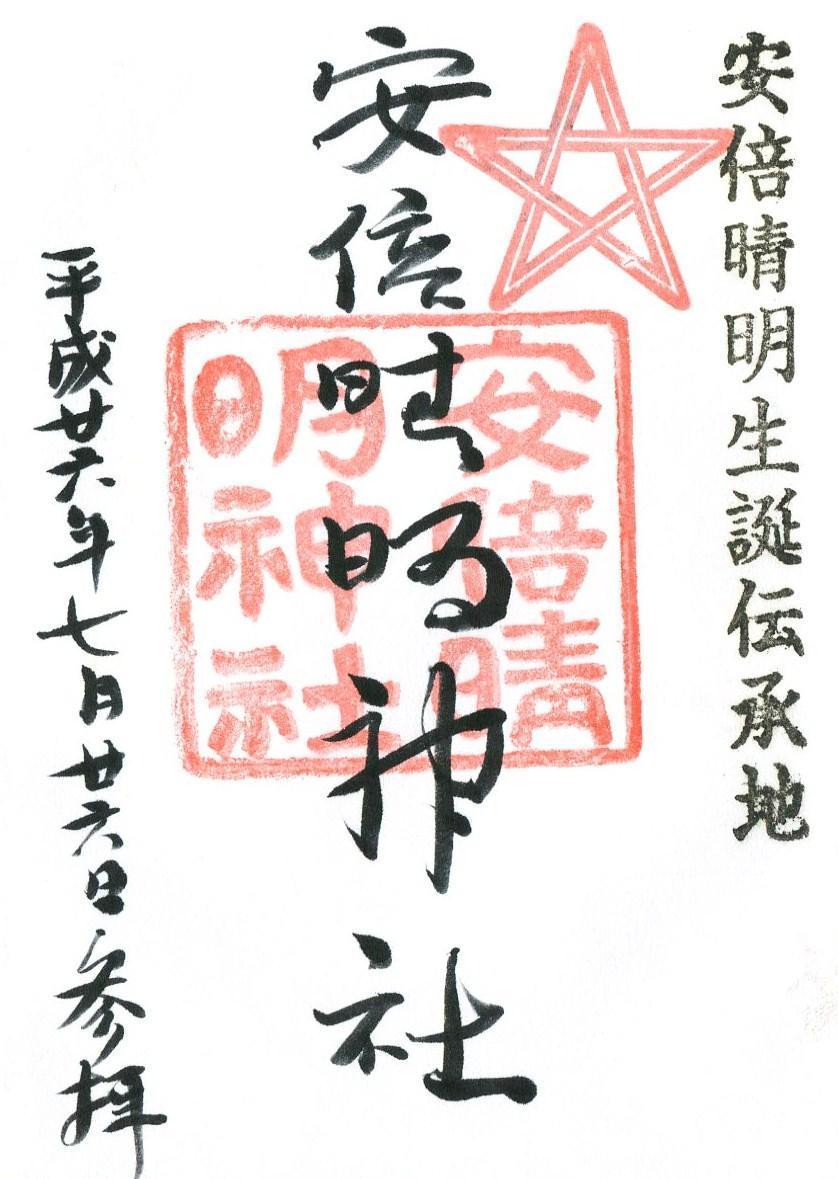 安倍晴明生誕伝承地
安倍晴明神社
安倍晴
明神社
平成廿六年七月廿六日参拝